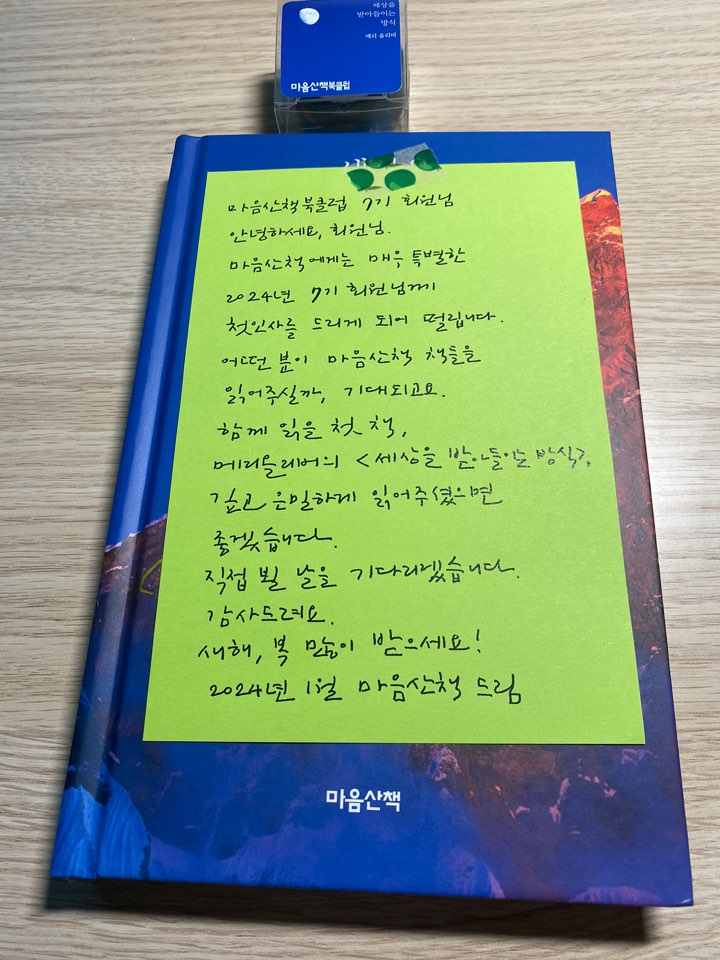 세상을
받아들이는
방식
메리 올리버
마음산책북클럽
마음산책북클럽 7기 회원님
안녕하세요, 회원님.
마음산책에게는 매우 특별한
2024년 7기 회원님께
첫인사를 드리게 되어 떨립니다.
어떤 분이 마음산책 책들을
읽어주실까, 기대되고요.
함께 읽을 첫 책,
메리올리버의 <세상을 받아들이는 방식>,
깊고 은밀하게 읽어주셨으면
좋겠습니다.
직접 뵐 날을 기다리겠습니다.
감사드려요.
새해, 복 많이 받으세요!
2024년 1월 마음산책 드림
마음산책